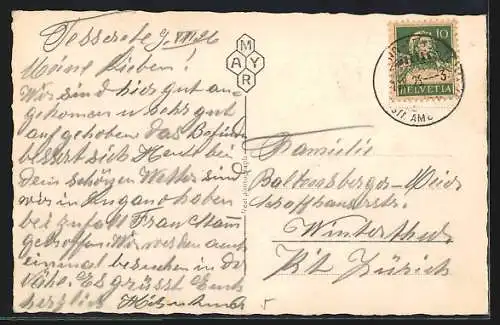 Tesserete 9. VIII 26
Meine Lieben!
Wir sind hier gut an-
gekommen u. sehr gut
aufgehoben das Befinden
bessert sich Heute bei
dem schönen Wetter sind
wir in Lugano haben
bei zufall Frau
getroffen. Wir werden auch
einmal besuchen in der
Nähe. Es grüsst Euch
herzlich
M
A Y
R
10
HELVETIA
Familie
Baltensberger-
Schaffhauserstr.
Winterthur
Kt. Zürich
5